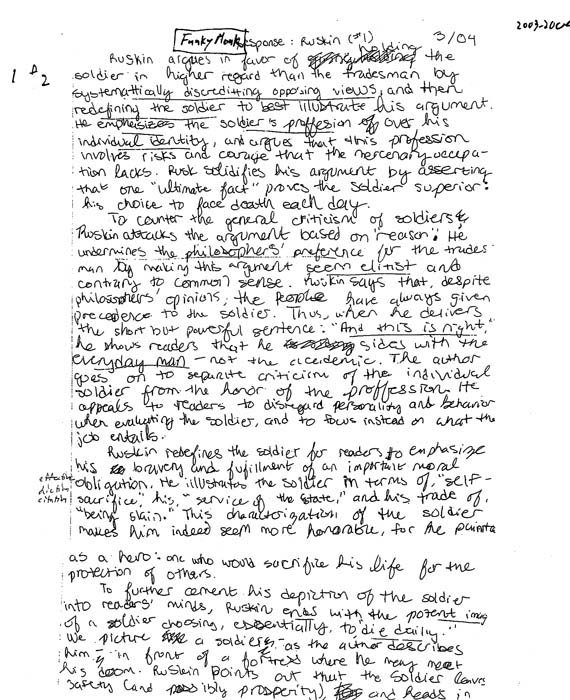 2003-2004
Funky Monk esponse: Ruskin (#1) 3/04
1 2
Ruskin argues in favor of holding the
soldier in higher regard than the tradesman by
systemattically discrediting opposing views, and then
redefining the soldier to best illustrate his argument.
He emphesizes the soldier's proffesion over his
individual identity, and argues that this profession
involves risks and courage that the mercenary occupa-
tion lacks. Rusk solidifies his argument by asserting
that one "ultimate fact" proves the soldier superior:
his choice to face death each day.
To counter the general criticism of soldiers,
Ruskin attacks the argument based on "reason". He
undermines the philosophers' preference for the trades-
man by making this argument seem elitist and
contrary to common sense. Ruskin says that, despite
philosophers' opinions, the people have always given
precedence to the soldier. Thus, when he delivers
the short but powerful sentence: "And this is right,"
he shows readers that he sides with the
everyday man - not the academic. The author
goes on to separate criticism of the individual
soldier from the honor of the proffession. He
appeals to readers to disregard personality and behavior
when evaluating the soldier, and to focus instead on what the
job entails.
Ruskin redefines the soldier for readers to emphasize
his bravery and fulfillment of an important moral
obligation. He illustrates the soldier in terms of "self-
sacrifice," his, "service of the state," and his trade of,
"being slain." This characterization of the soldier
makes him indeed seem more honorable, for he
as a hero: one who would sacrifice his life for the
protection of others.
To further cement his depiction of the soldier
into readers' minds, Ruskin ends with the potent imag
of a soldier choosing, essentially, to "die daily."
We picture a soldier, as the author describes
him, in front of a fortress where he may meet
his doom. Ruskin points out that the soldier leaves
safety (and possibly prosperity), and heads in